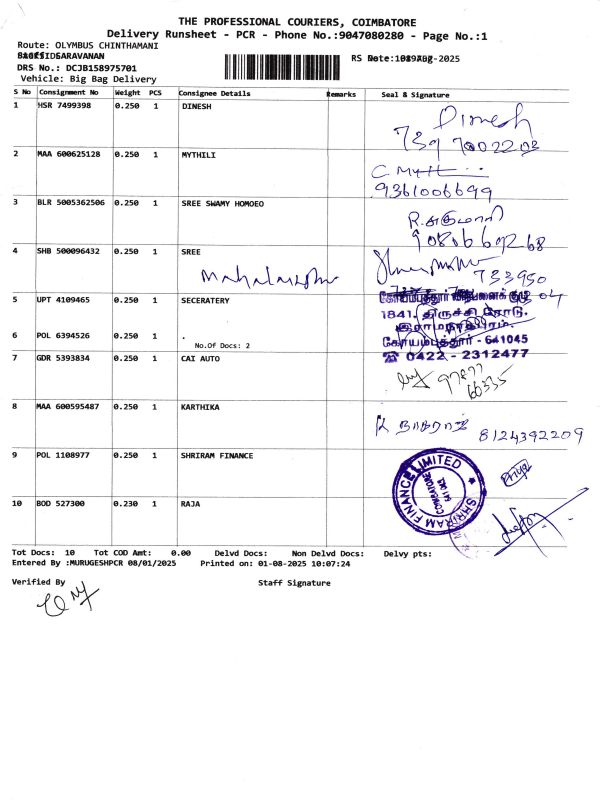 THE PROFESSIONAL COURIERS, COIMBATORE
Delivery Runsheet - PCR - Phone No.:9047080280 - Page No.:1
Route: OLYMBUS CHINTHAMANI
SARAVANAN
DRS No.: DCJB158975701
Vehicle: Big Bag Delivery
S No Consignment No Weight PCS Consignee Details Remarks Seal & Signature
1 HSR 7499398 0.250 1 DINESH
Dinesh
2 MAA 600625128 0.250 1 MYTHILI
9361006699
3 BLR 5005362506 0.250 1 SREE SWAMY HOMOEO
4 SHB 500096432 0.250 1 SREE
5 UPT 4109465 0.250 1 SECERATERY
1841, திருச்சி ரோடு,
இராமநாதபுரம்,
6 POL 6394526 0.250 1 .
No.Of Docs: 2
கோயம்புத்தூர் - 641045
☎ 0422 - 2312477
7 GDR 5393834 0.250 1 CAI AUTO
97877
66335
8 MAA 600595487 0.250 1 KARTHIKA
8124392209
9 POL 1108977 0.250 1 SHRIRAM FINANCE
SHRIRAM FINANCE LIMITED
Priya
10 BOD 527300 0.230 1 RAJA
Tot Docs: 10 Tot COD Amt: 0.00 Delvd Docs: Non Delvd Docs: Delvy pts:
Entered By :MURUGESHPCR 08/01/2025 Printed on: 01-08-2025 10:07:24
Verified By Staff Signature